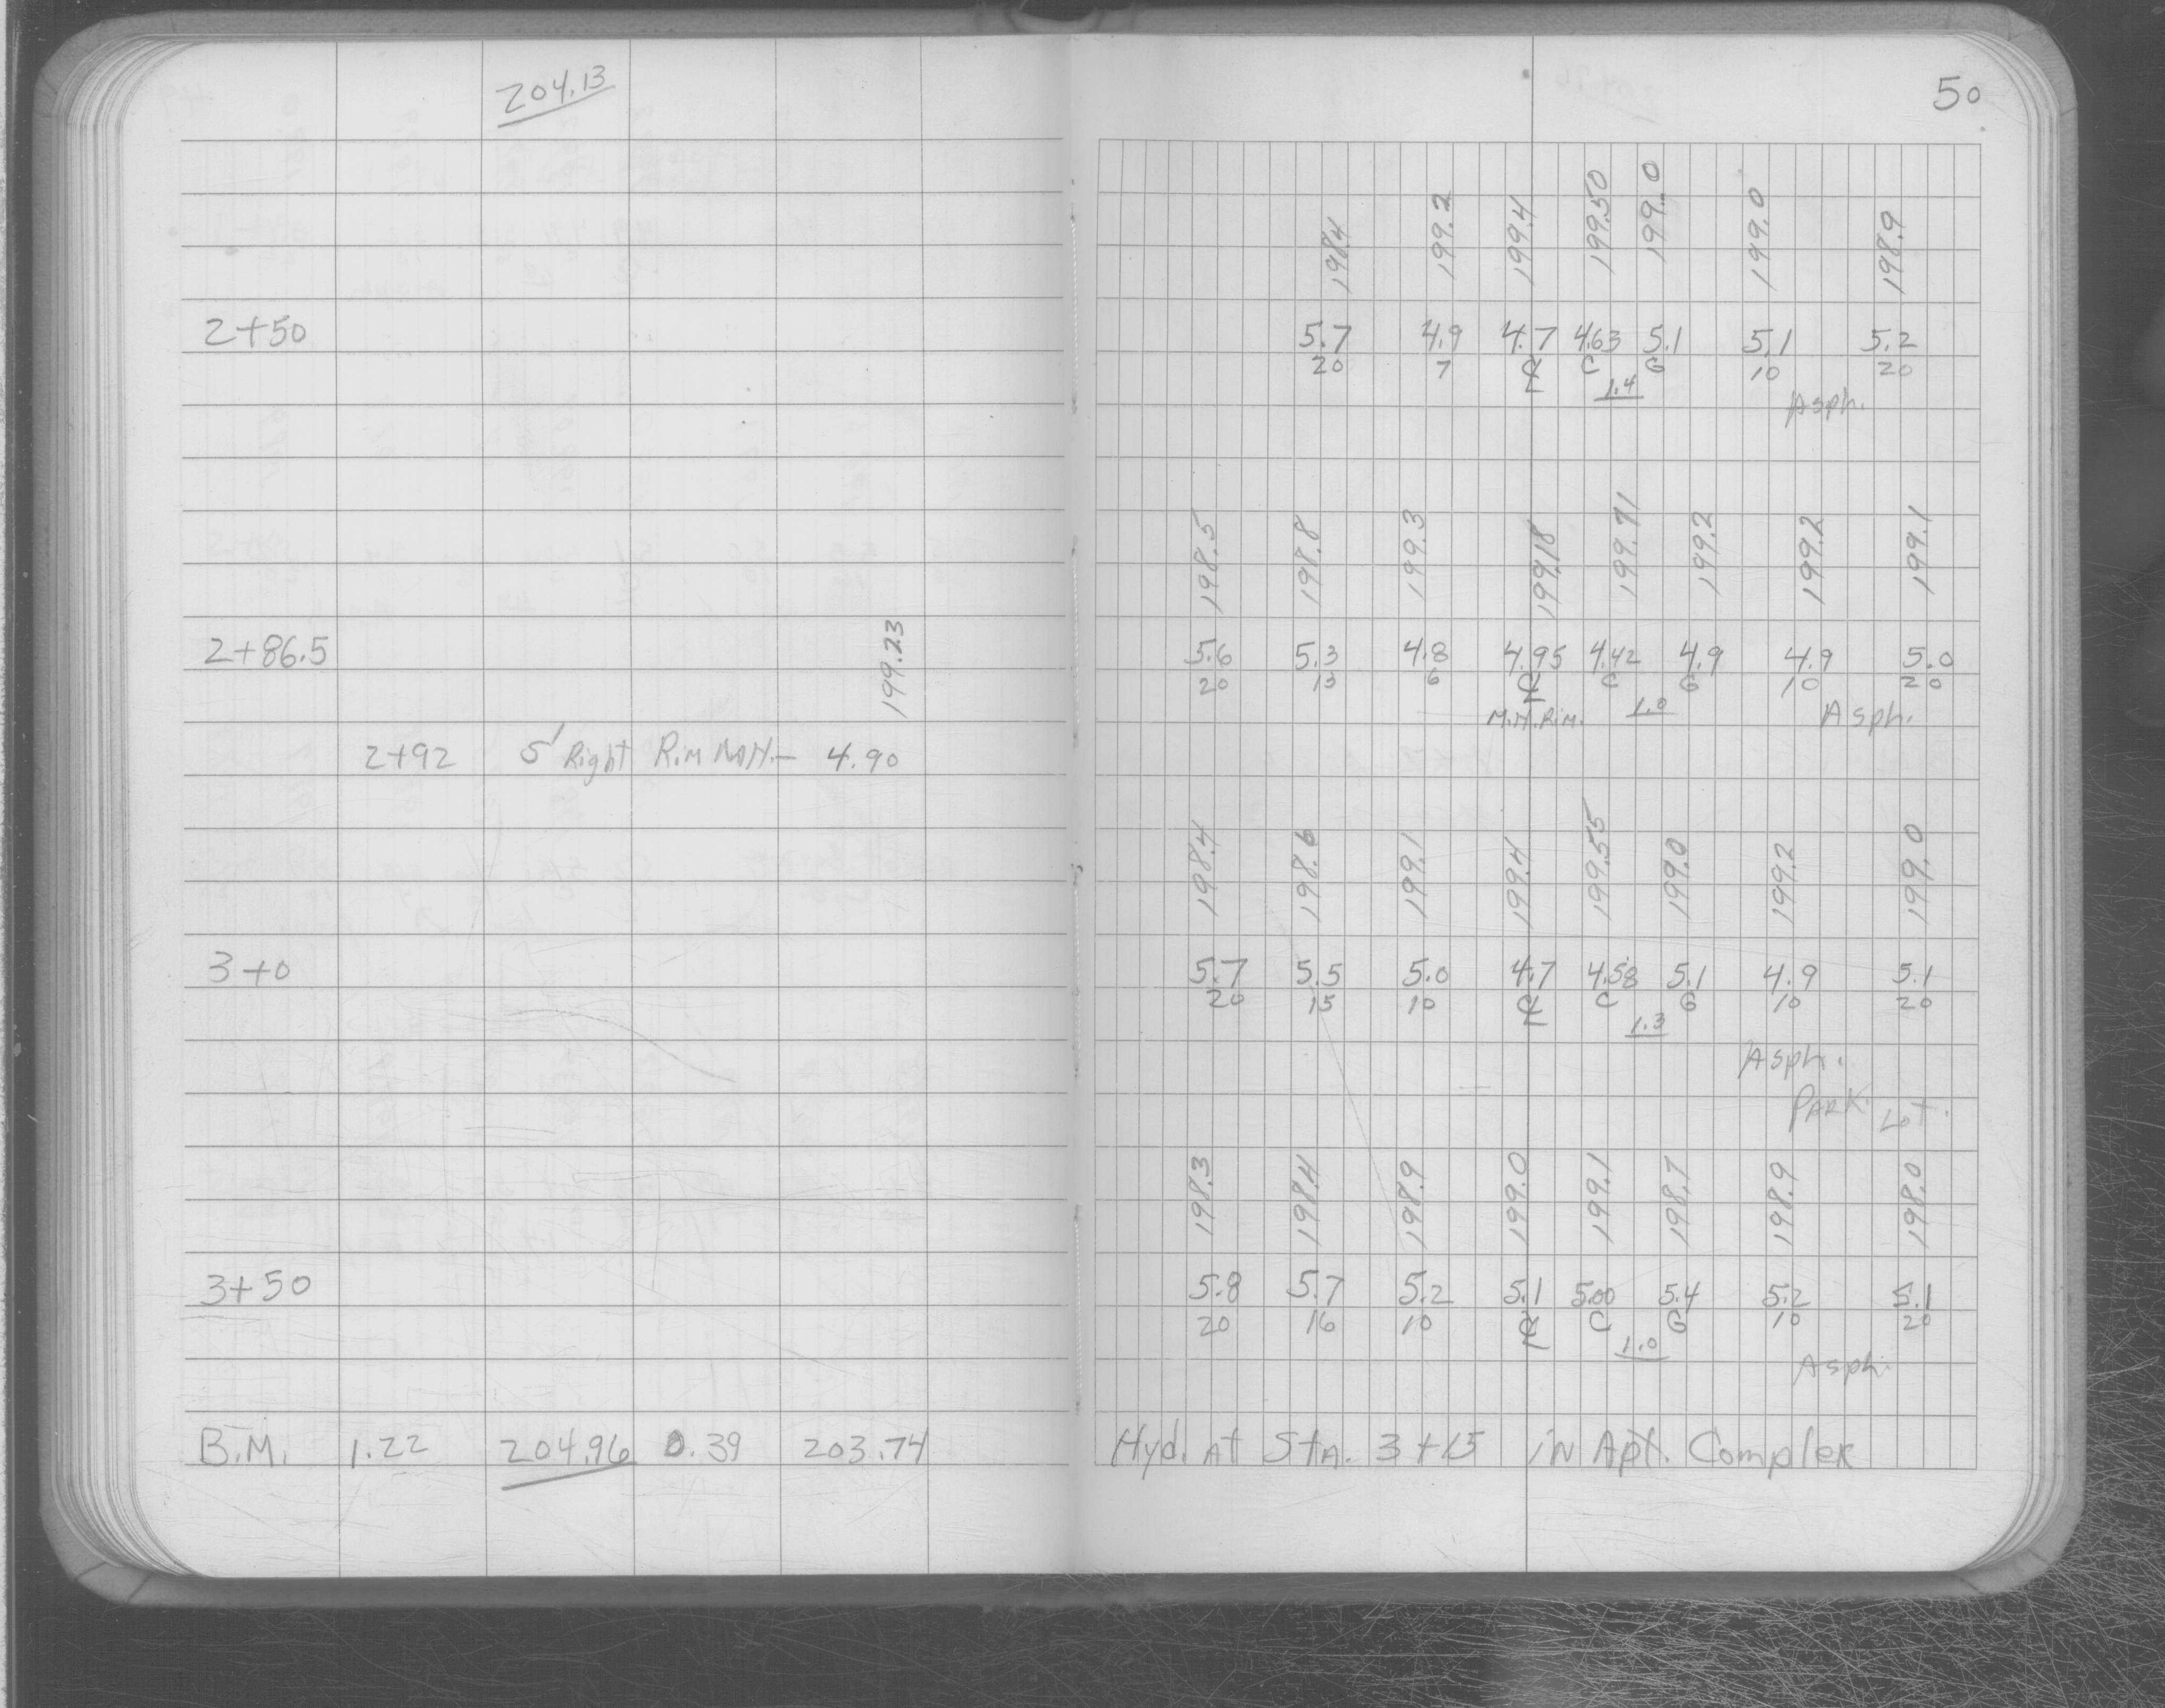 204.13
50
198.4 199.2 199.4 199.50 199.0 199.0 198.9
2+50 5.7 4.9 4.7 4.63 5.1 5.1 5.2
20 7 ℄ C G 10 20
1.4 Asph.
198.5 198.8 199.3 199.18 199.71 199.2 199.2 199.1
2+86.5 199.23 5.6 5.3 4.8 4.95 4.42 4.9 4.9 5.0
20 13 6 ℄ C G 10 20
M.H. Rim. 1.0 Asph.
2+92 5' Right Rim M.H.— 4.90
198.4 198.6 199.1 199.4 199.55 199.0 199.2 199.0
3+0 5.7 5.5 5.0 4.7 4.58 5.1 4.9 5.1
20 15 10 ℄ C G 10 20
1.3
Asph.
PARK. Lot.
198.3 198.4 198.9 199.0 199.1 198.7 198.9 198.0
3+50 5.8 5.7 5.2 5.1 5.00 5.4 5.2 5.1
20 16 10 ℄ C G 10 20
1.0
Asph.
B.M. 1.22 204.96 0.39 203.74 Hyd. At StA. 3+15 in Apt. Complex